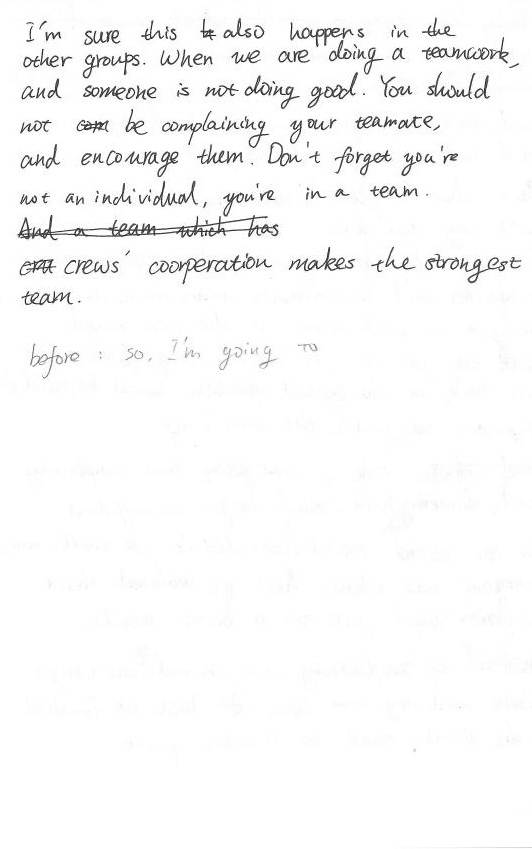 I'm sure this also happens in the
other groups. When we are doing a teamwork,
and someone is not doing good. You should
not be complaining your teamate,
and encourage them. Don't forget you're
not an individual, you're in a team.
And a team which has
crews' coorperation makes the strongest
team.
before : so, I'm going to